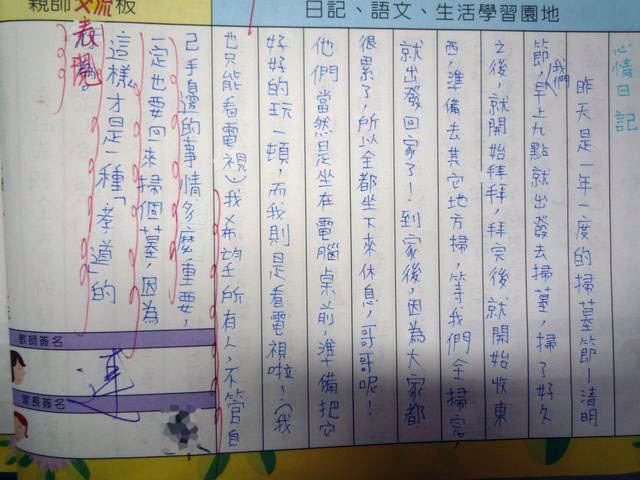 日記、語文、生活學習園地
心情日記
昨天是一年一度的掃墓節—清明
節,我們早上九點就出發去掃墓,掃了好久
之後,就開始拜拜,拜完後就開始收東
西,準備去其它地方掃,等我們全掃完,
就出發回家了!到家後,因為大家都
很累了,所以全都坐下來休息,哥哥呢!
他們當然是坐在電腦桌前,準備把它
好好的玩一頓,而我則是看電視啦!(我
也只能看電視)我希望所有人,不管自
己手邊的事情多麼重要,
一定也要回來掃個墓,因為
這樣才是一種「孝道」的
表現。
親師交流板
教師簽名
家長簽名